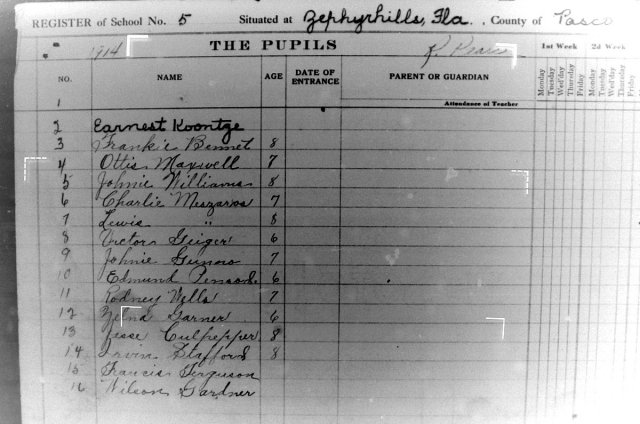 REGISTER of School No. 5 Situated at Zephyrhills, Fla. County of Pasco
1914 THE PUPILS 1st Week 2d Week
NO. NAME AGE DATE OF ENTRANCE PARENT OR GUARDIAN Monday Tuesday Wed'day Thursday Friday Monday Tuesday Wed'day Thursday Friday
1 Attendance of Teacher
2 Earnest Koontze
3 Frankie Bennet 8
4 Ottis Maxwell 7
5 Johnie Williams 8
6 Charlie Meszaros 7
7 Lewis " 8
8 Victor Geiger 6
9 Johnie 7
10 Edmund 6
11 Rodney Wells 7
12 Zelma Garner 6
13 Jesse Culpepper 8
14 Irvin Stafford 8
15 Francis Ferguson
16 Wilson Gardner